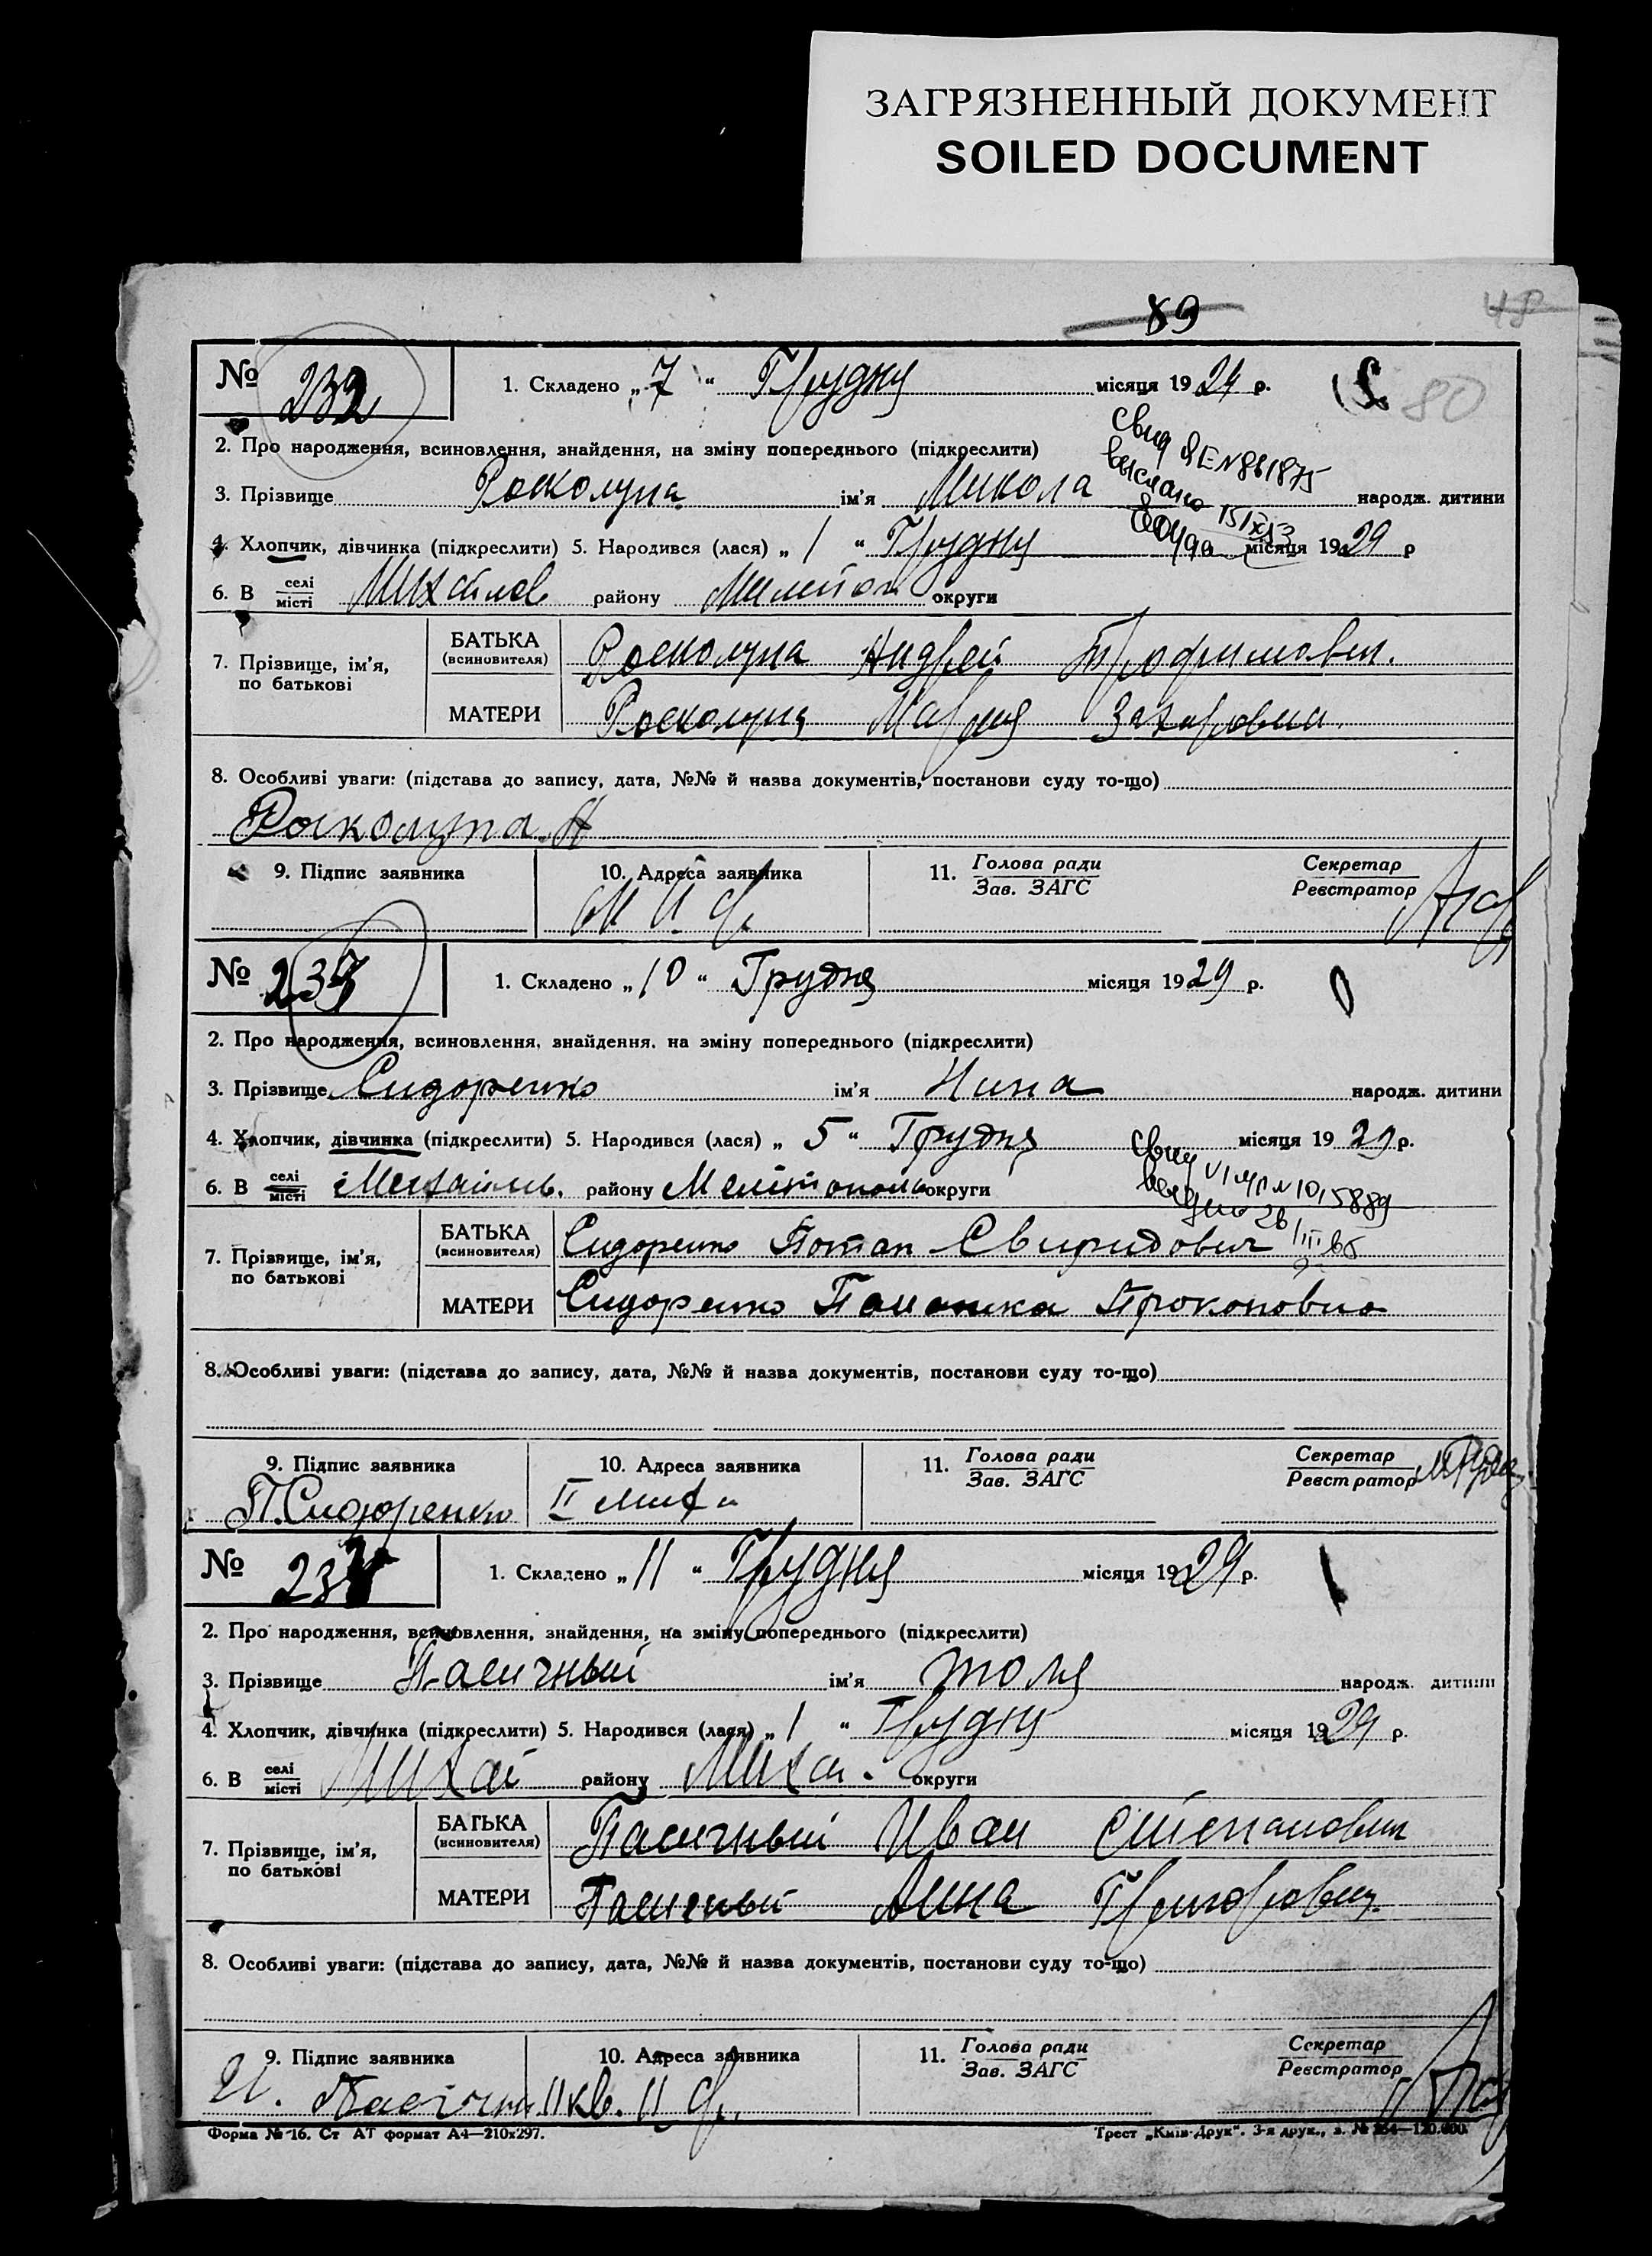 ЗАГРЯЗНЕННЫЙ ДОКУМЕНТ
SOILED DOCUMENT
89
48
80
№ 232
1. Складено „ 7 “ Грудня місяця 19 29 р.
2. Про народження, всиновлення, знайдення, на зміну попереднього (підкреслити)
Свид
3. Прізвище Росколупа ім'я Микола народж. дитини
выслано
4. Хлопчик, дівчинка (підкреслити) 5. Народився (лася) „ 1 “ Грудня місяця 19 29 р
6. В селі/місті Михайлов району Мелитоп округи
7. Прізвище, ім'я, по батькові
БАТЬКА (всиновителя) Росколупа Андрей Трофимович.
МАТЕРИ Росколупа Мария Захаровна.
8. Особливі уваги: (підстава до запису, дата, №№ й назва документів, постанови суду то-що)
Росколупа А
9. Підпис заявника
10. Адреса заявника
11. Голова ради / Зав. ЗАГС
Секретар / Реєстратор
№ 233
1. Складено „ 10 “ Грудня місяця 19 29 р.
2. Про народження, всиновлення, знайдення, на зміну попереднього (підкреслити)
3. Прізвище Сидоренко ім'я Нина народж. дитини
4. Хлопчик, дівчинка (підкреслити) 5. Народився (лася) „ 5 “ Грудня місяця 19 29 р.
Свид
6. В селі/місті Михайлів. району Мелітополь округи
7. Прізвище, ім'я, по батькові
БАТЬКА (всиновителя) Сидоренко Потап Свиридович
МАТЕРИ Сидоренко Прокоповна
8. Особливі уваги: (підстава до запису, дата, №№ й назва документів, постанови суду то-що)
9. Підпис заявника П. Сидоренко
10. Адреса заявника II
11. Голова ради / Зав. ЗАГС
Секретар / Реєстратор
№ 234
1. Складено „ 11 “ Грудня місяця 19 29 р.
2. Про народження, всиновлення, знайдення, на зміну попереднього (підкреслити)
3. Прізвище Пасичный ім'я Толя народж. дитини
4. Хлопчик, дівчинка (підкреслити) 5. Народився (лася) „ 1 “ Грудня місяця 19 29 р.
6. В селі/місті Михай району Михай. округи
7. Прізвище, ім'я, по батькові
БАТЬКА (всиновителя) Пасичный Иван Степанович
МАТЕРИ Пасичный Анна Григоровна
8. Особливі уваги: (підстава до запису, дата, №№ й назва документів, постанови суду то-що)
9. Підпис заявника И.
10. Адреса заявника II кв.
11. Голова ради / Зав. ЗАГС
Секретар / Реєстратор
Форма № 16. Ст АТ формат А4—210х297.
Трест „Київ-Друк“. 3-я друк., з. №